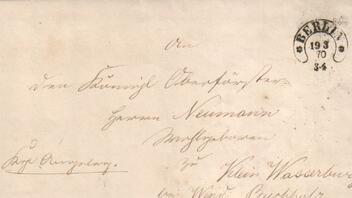 BERLIN
19 3
70
3-4
An
den Königl Oberförster
Herrn Neumann
Wohlgeboren
zu
Klein Wasserburg
bei Wend. Buchholz